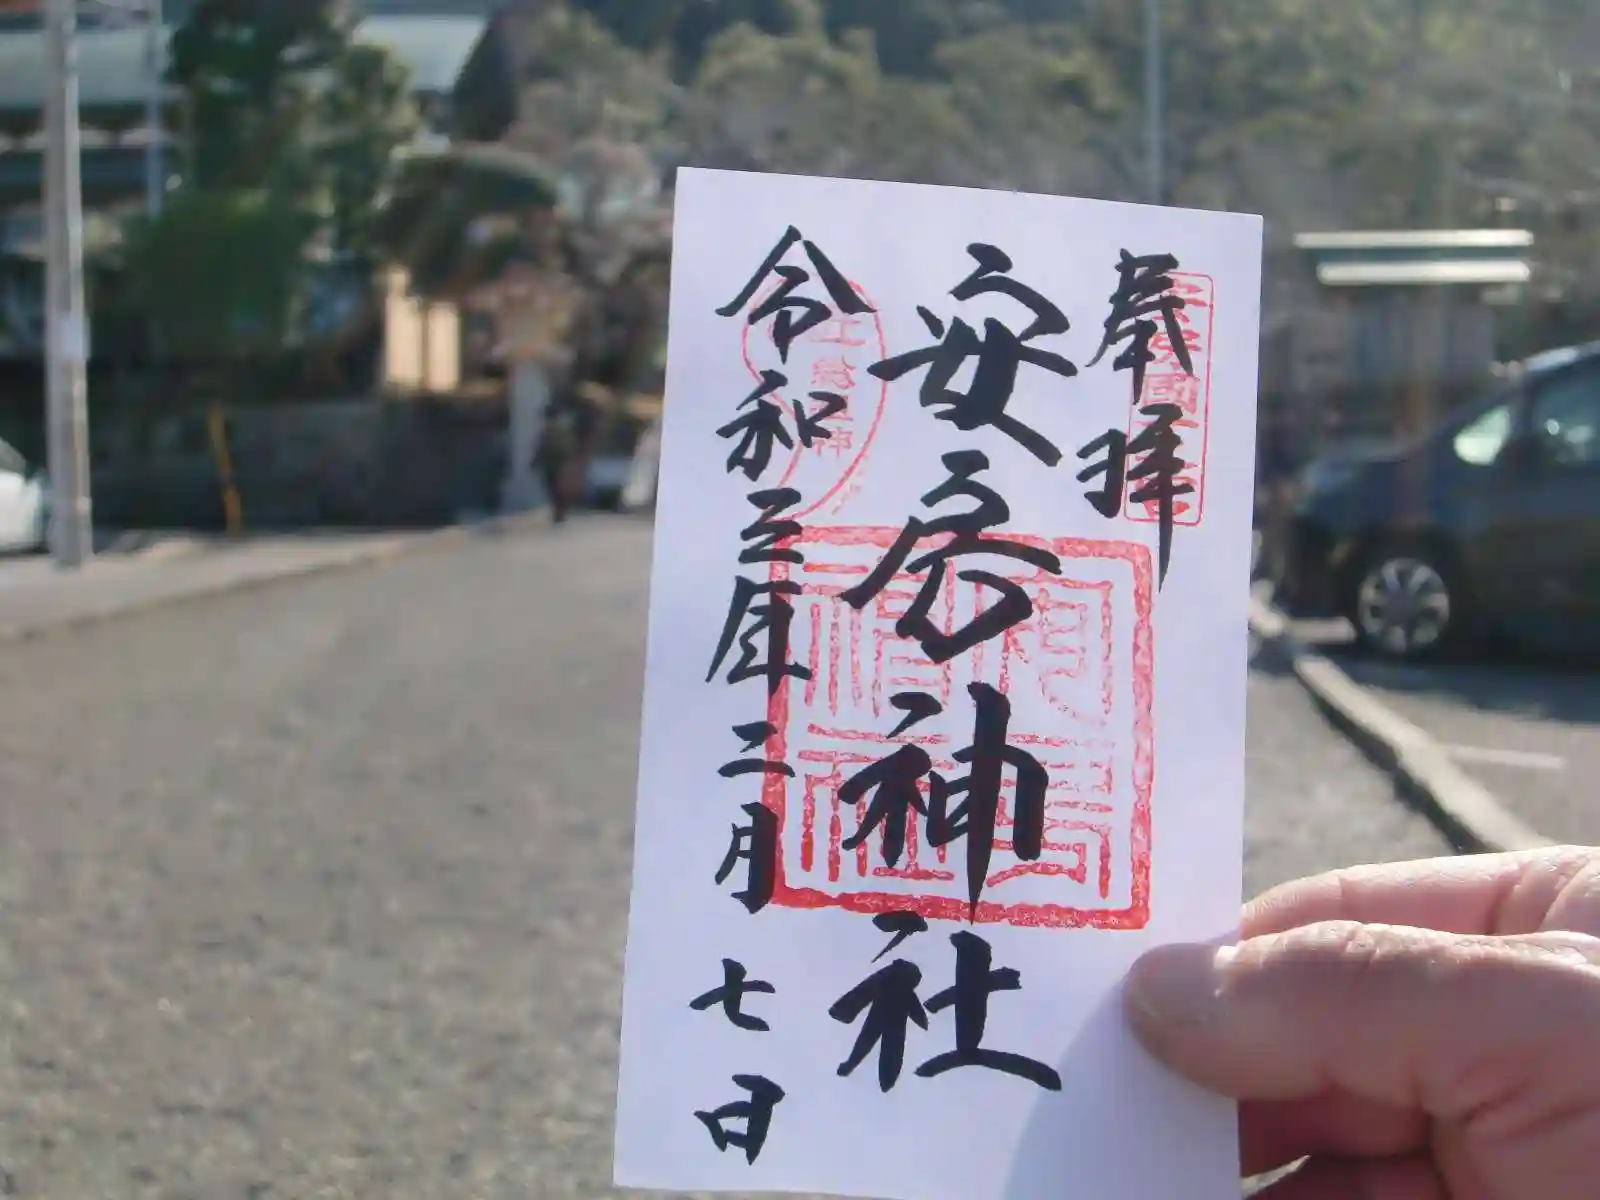 奉拝
安房國一宮
安房神社
令和三年二月七日